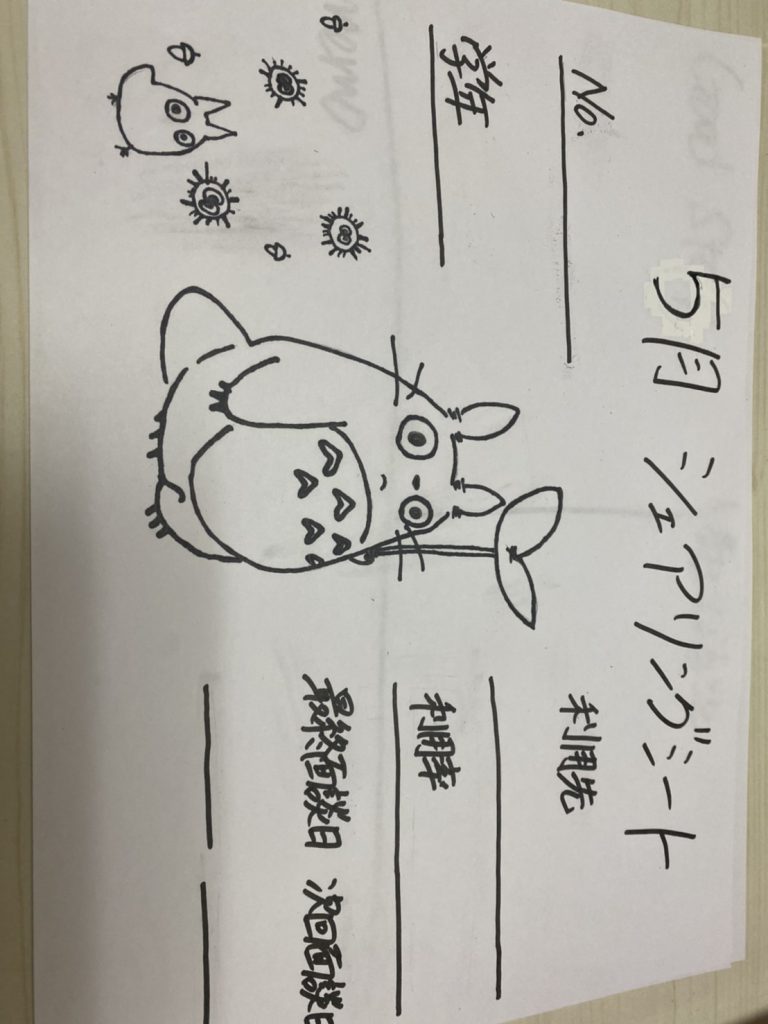 5月 シェアリングシート
No.
学年
利用先
利用率
最終面談日 次回面談日